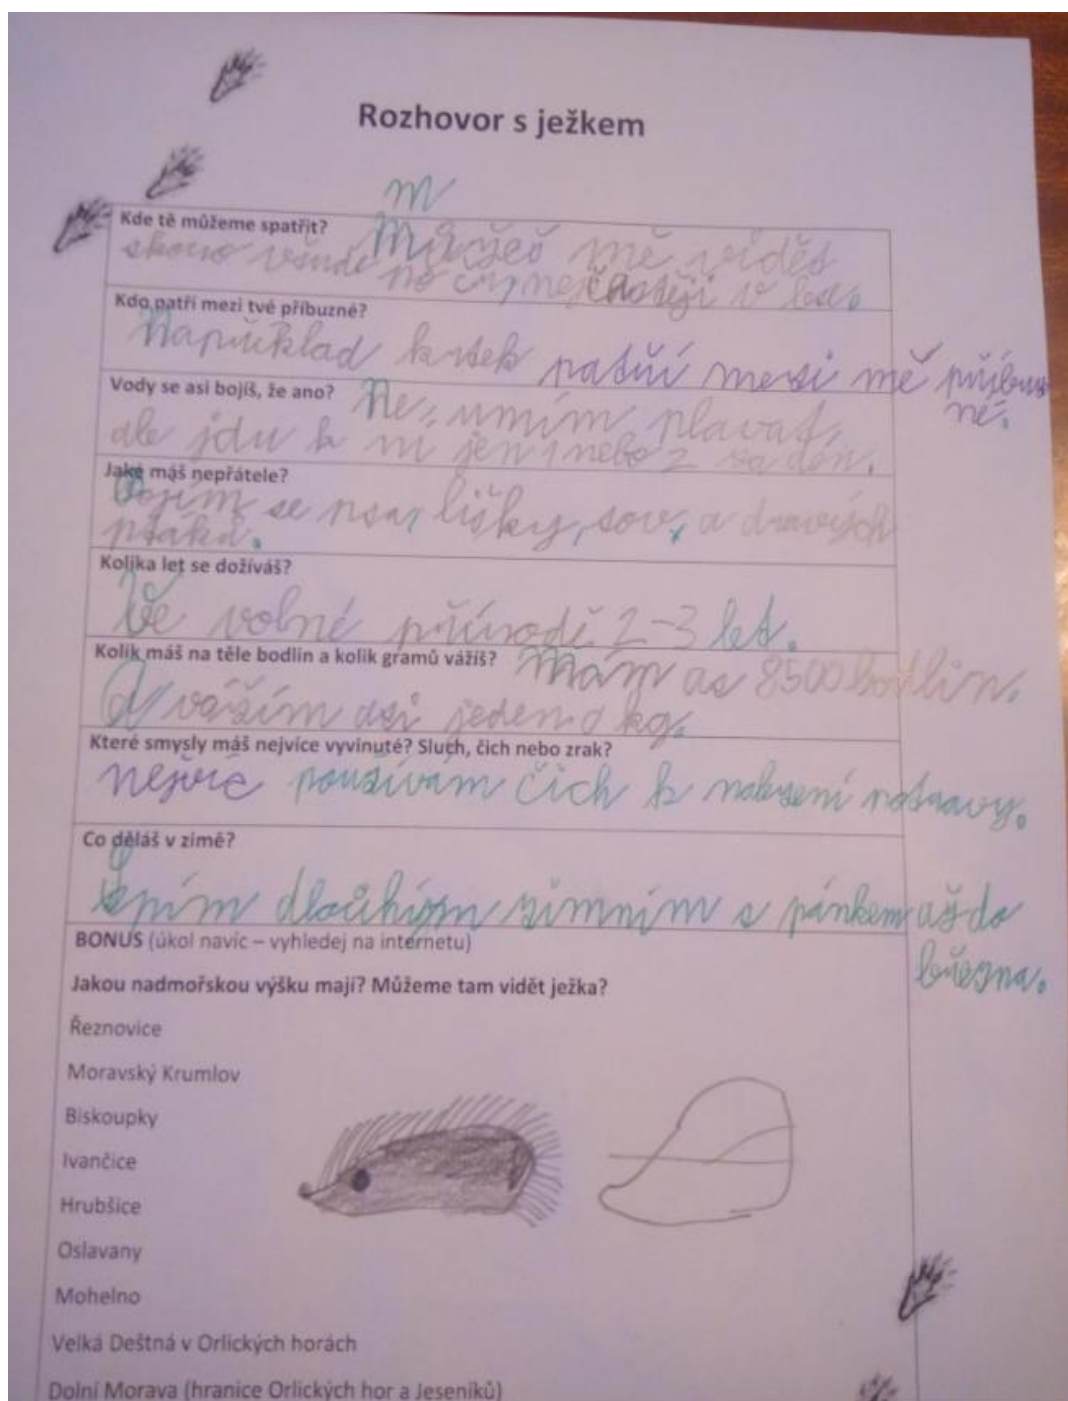 Rozhovor s ježkem
m
Kde tě můžeme spatřit? Můžeš mě vidět
skoro všude no cy, nejčastěji v lese.
Kdo patří mezi tvé příbuzné?
Například krtek patří mezi mě příbuz
né.
Vody se asi bojíš, že ano? Ne, umím plavat,
ale jdu k ní jen 1 nebo 2 za den.
Jaké máš nepřátele?
Bojím se psa, lišky, sov, a dravých
ptáků.
Kolika let se dožíváš?
Ve volné přírodě 2-3 let.
Kolik máš na těle bodlin a kolik gramů vážíš? Mám as 8500 bodlin.
A vážím asi jeden kg.
Které smysly máš nejvíce vyvinuté? Sluch, čich nebo zrak?
nejvíc používám čich k nalezení potravy.
Co děláš v zimě?
Spím dloúhým zimním s pánkem až do
března.
BONUS (úkol navíc – vyhledej na internetu)
Jakou nadmořskou výšku mají? Můžeme tam vidět ježka?
Řeznovice
Moravský Krumlov
Biskoupky
Ivančice
Hrubšice
Oslavany
Mohelno
Velká Deštná v Orlických horách
Dolní Morava (hranice Orlických hor a Jeseníků)